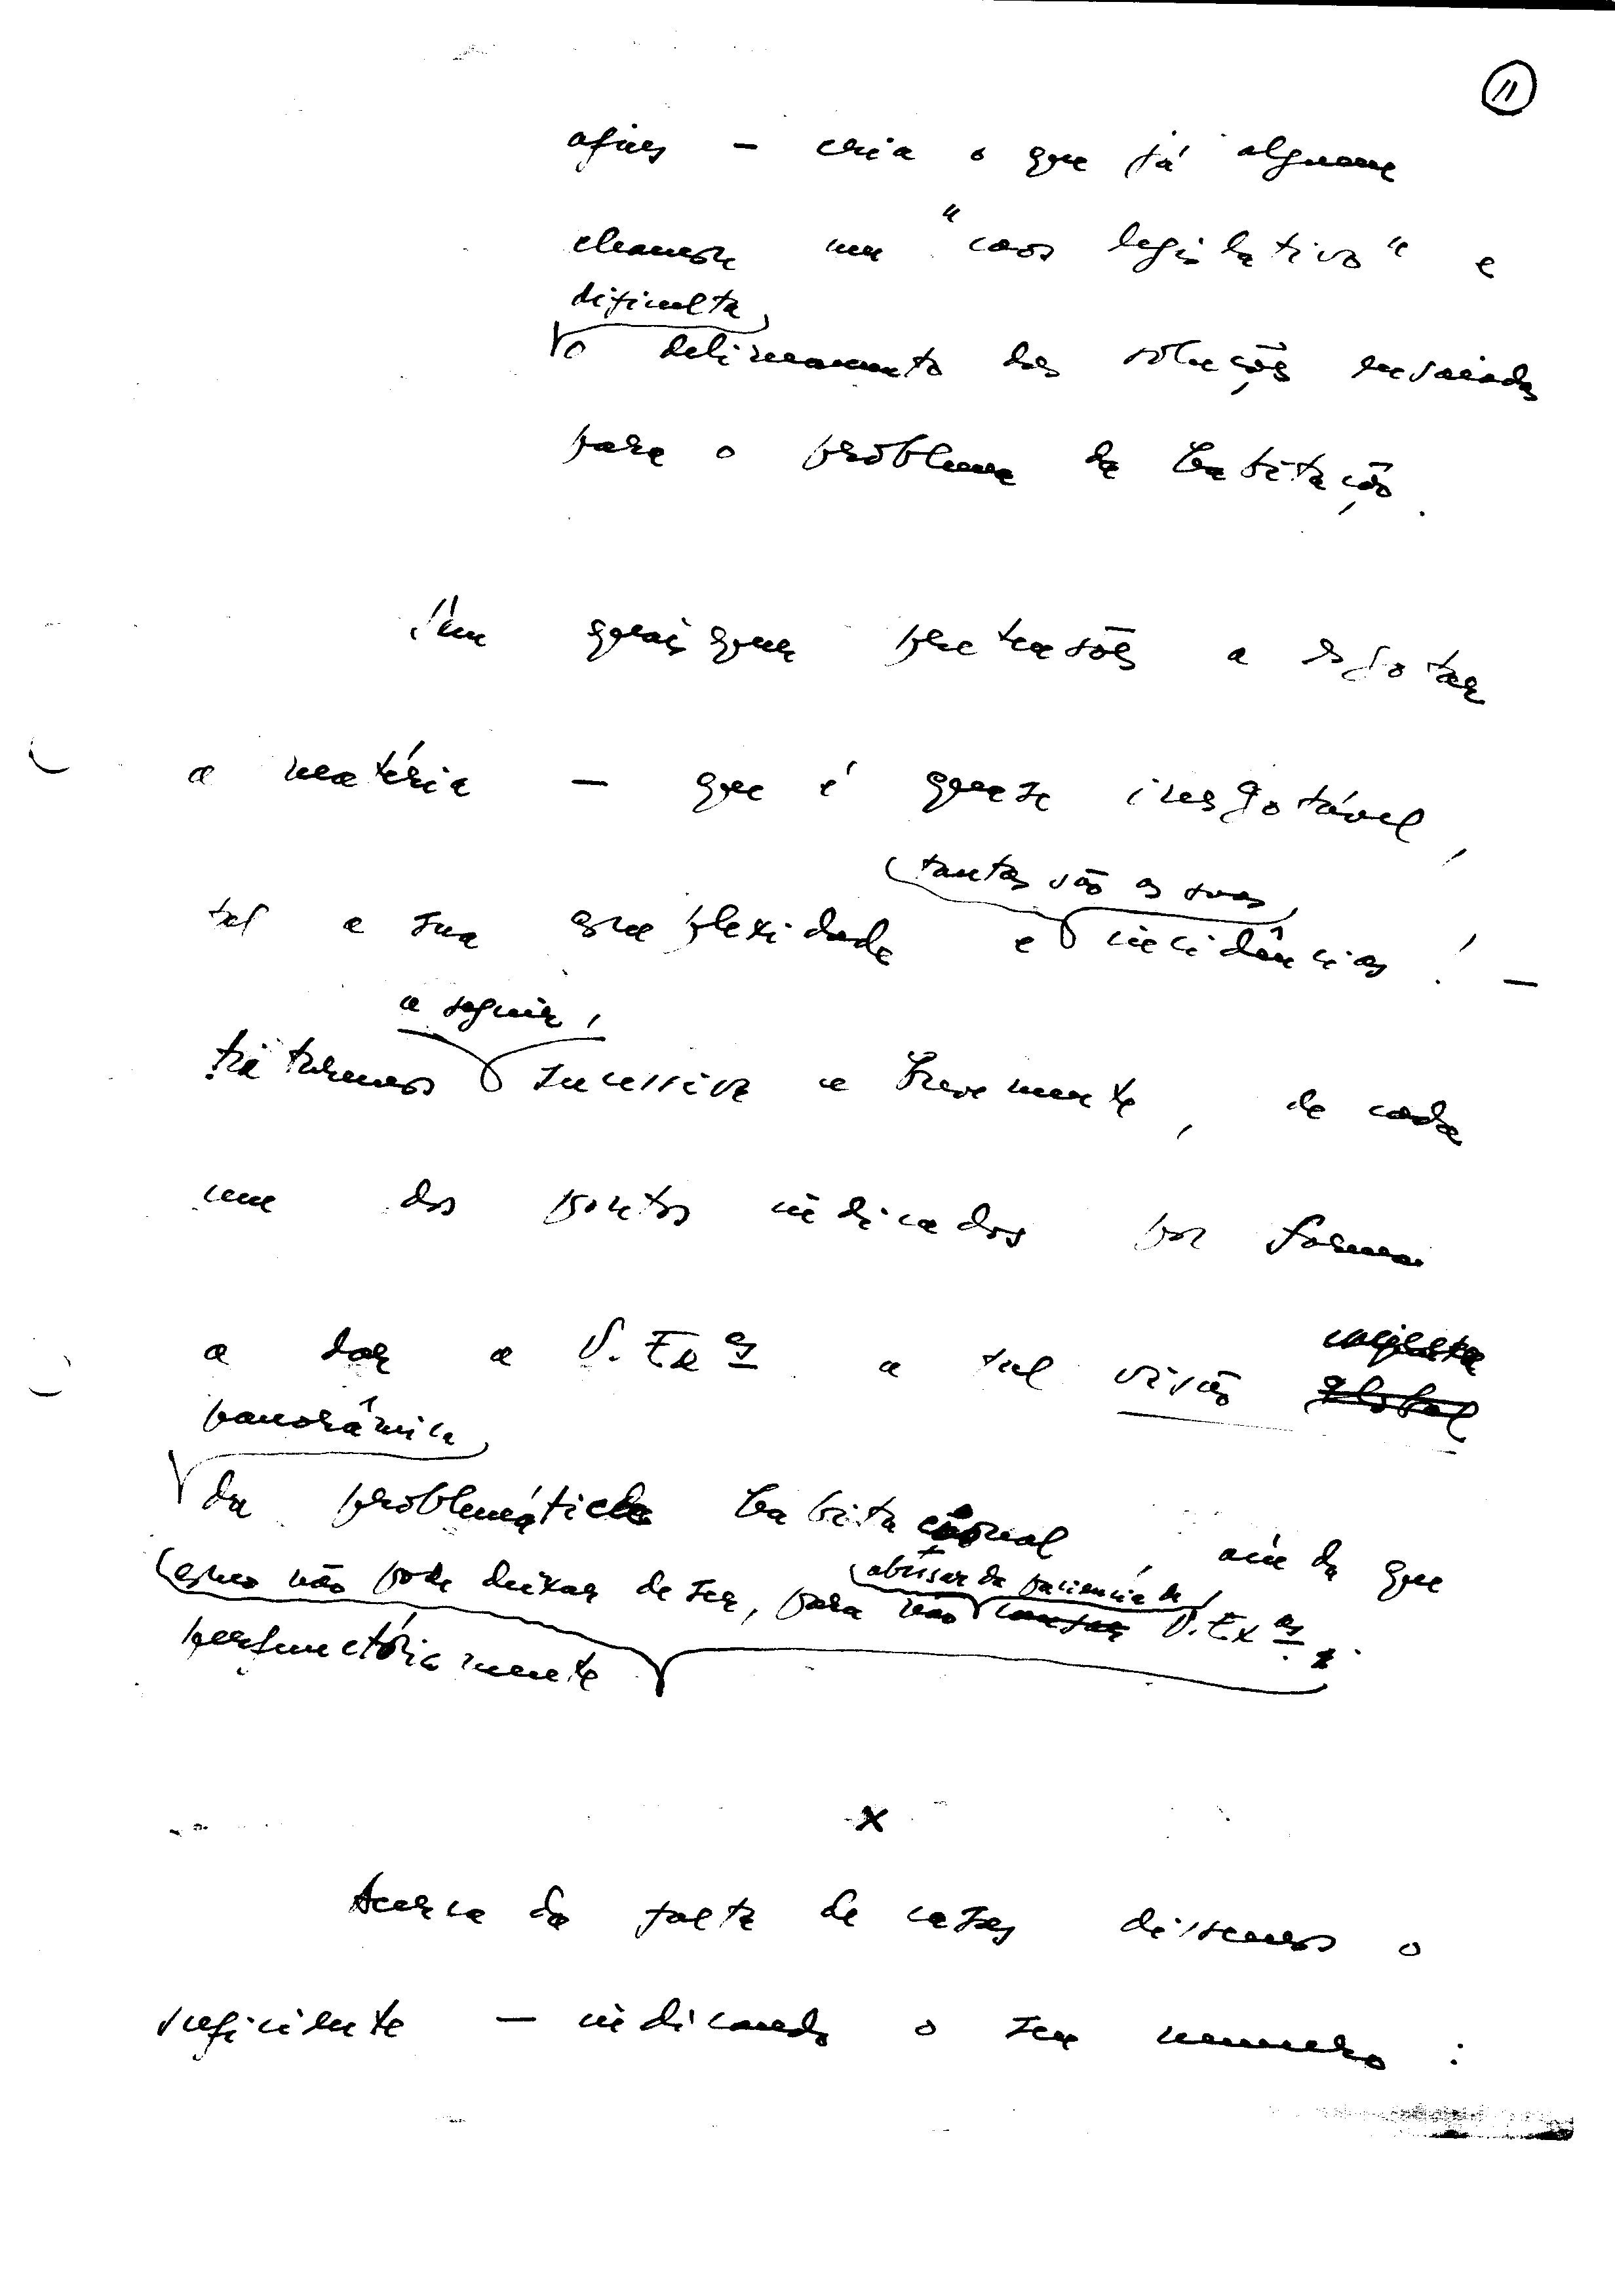 11
afins - cria o que já alguem
chamou um "caos legislativo" e
dificulta
o delineamento das soluções ensaiadas
para o problema da habitação.
Sem quaisquer pretensões a esgotar
a matéria - que é quase inesgotável,
tantas são as suas
tal a sua complexidade e incidências! -
a seguir,
trataremos sucessiva e brevemente, de cada
um dos pontos indicados por forma
a dar a V. Ex as a tal visão
panorâmica
da problemática habitacional, ainda que
como não pode deixar de ser, para não abusar da paciencia de V. Ex as.
perfunctóriamente
x
Acerca da falta de casas dissemos o
suficiente - indicando o seu numero: